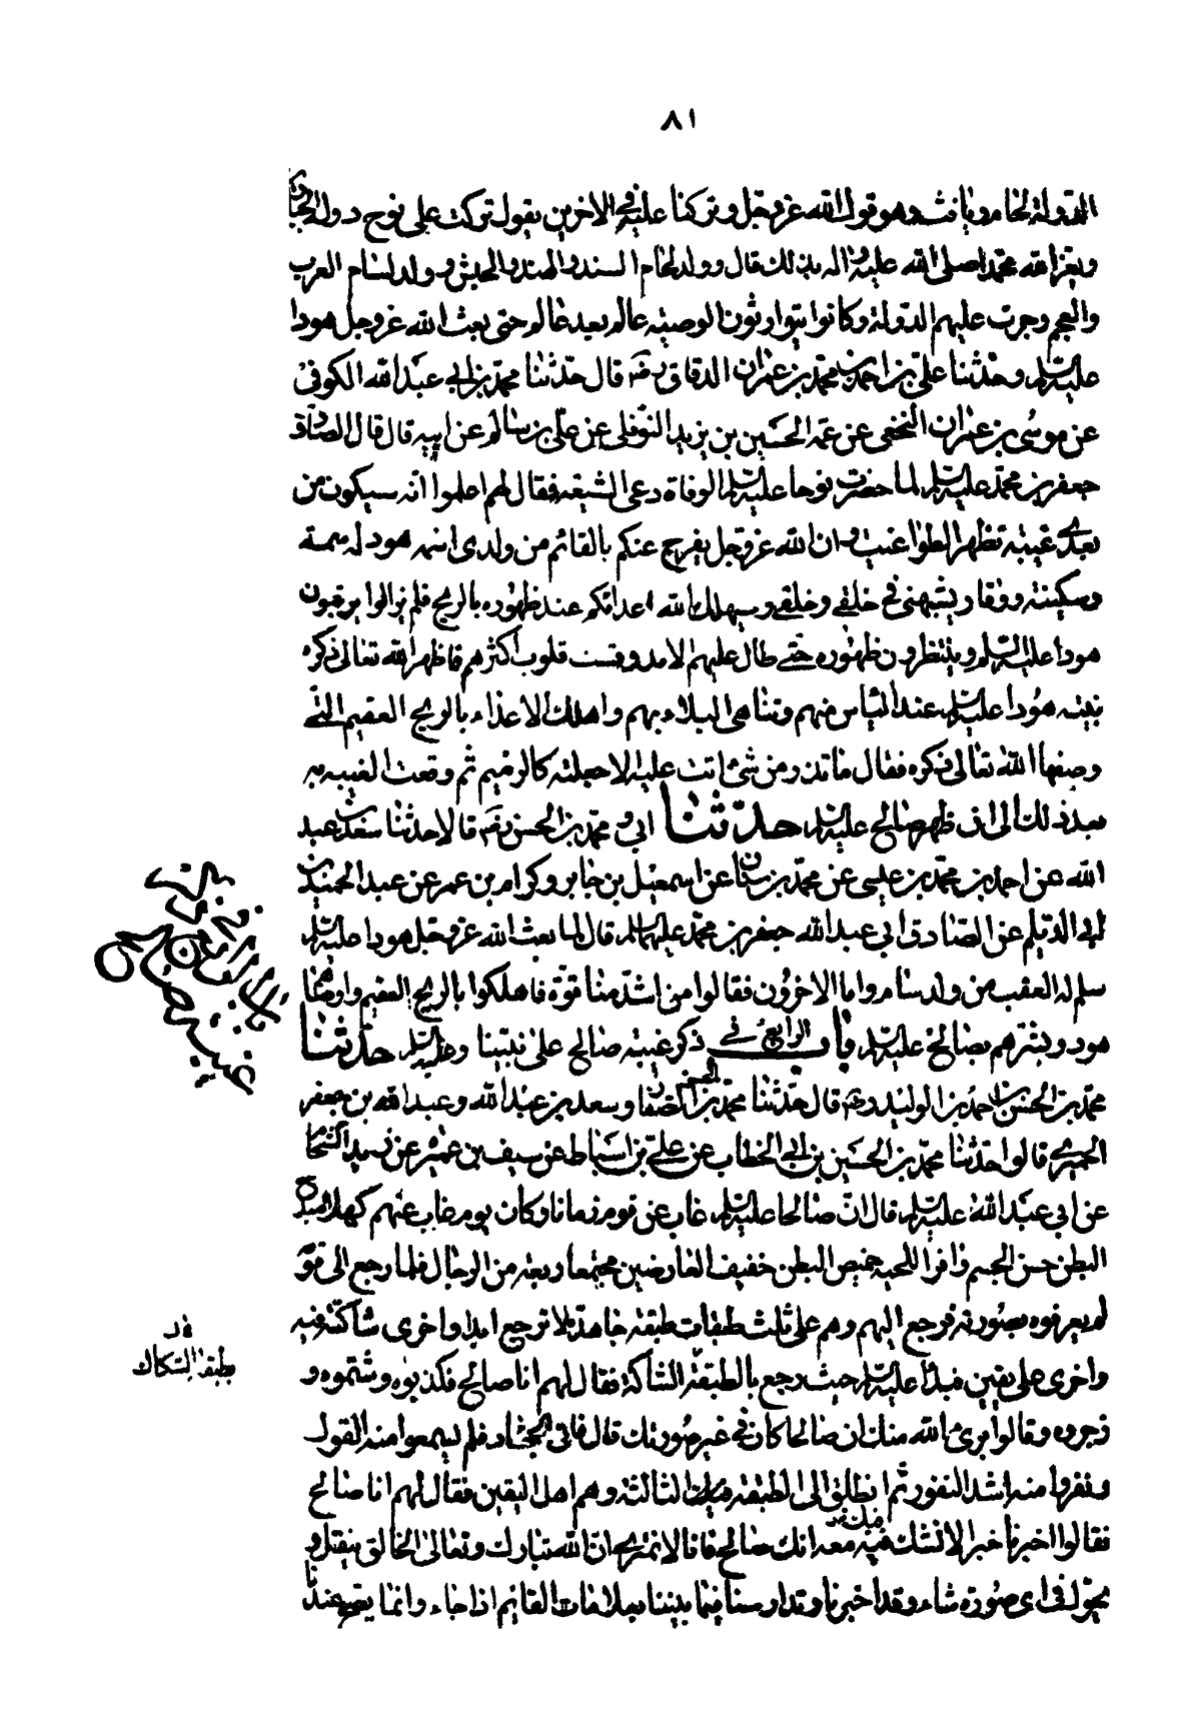 ٨١
الدولة لحام ويافث وهو قول الله عز وجل وتركنا عليه فى الاخرين يقول تركت على نوح دولة الجبارين
ويعز الله محمدا صلى الله عليه واله بذلك قال وولد لحام السند والهند والحبش وولد لسام العرب
والعجم وجرت عليهم الدولة وكانوا يتوارثون الوصية عالم بعد عالم حتى بعث الله عز وجل هودا
عليه السلم وحدثنا على بن احمد بن محمد بن عمران الدقاق رضه قال حدثنا محمد بن ابى عبد الله الكوفى
عن موسى بن عمران النخعى عن عمه الحسين بن يزيد النوفلى عن على بن سالم عن ابيه قال قال الصادق
جعفر بن محمد عليه السلم لما حضرت نوحا عليه السلم الوفاة دعى الشيعة فقال لهم اعلموا انه سيكون من
بعدى غيبة تظهر الطواغيت وان الله عز وجل يفرج عنكم بالقائم من ولدى اسمه هود له سمة
وسكينة ووقار يشبهنى فى خلقى وخلقى وسيهلك الله اعدائكم عند ظهوره بالريح فلم يزالوا يرقبون
هودا عليه السلم وينتظرون ظهوره حتى طال عليهم الامد وقست قلوب اكثرهم فاظهر الله تعالى ذكره
نبيه هودا عليه السلم عند الياس منهم وتناهى البلاء بهم واهلك الاعداء بالريح العقيم التى
وصفها الله تعالى ذكره فقال ما تذر من شئ اتت عليه الا جعلته كالرميم ثم وقعت الغيبة به
بعد ذلك الى ان ظهر صالح عليه السلم حدثنا ابى ومحمد بن الحسن رضه قالا حدثنا سعد بن عبد
الله عن احمد بن محمد بن عيسى عن محمد بن سنان عن اسمعيل بن جابر وكرام بن عمر عن عبد الحميد بن
ابى الديلم عن الصادق ابى عبد الله جعفر بن محمد عليهما السلم قال لما بعث الله عز وجل هودا عليه السلم
سلم له العقب من ولد سام واما الاخرون فقالوا من اشد منا قوة فاهلكوا بالريح العقيم واوصاهم
هود وبشرهم بصالح عليه السلم باب الرابع فى ذكر غيبة صالح على نبينا وعليه السلم حدثنا
محمد بن الحسن بن احمد بن الوليد رضه قال حدثنا محمد بن الحسن الصفار وسعد بن عبد الله وعبد الله بن جعفر
الحميرى قالوا حدثنا محمد بن الحسين بن ابى الخطاب عن على بن اسباط عن سيف بن عميرة عن زيد الشحام
عن ابى عبد الله عليه السلم قال ان صالحا عليه السلم غاب عن قومه زمانا وكان يوم غاب عنهم كهلا مبدح
البطن حسن الجسم وافر اللحية خميص البطن خفيف العارضين مجتمعا ربعة من الرجال فلما رجع الى قومه
لم يعرفوه بصورته فرجع اليهم وهم على ثلث طبقات طبقة جاحدة لا ترجع ابدا واخرى شاكة فيه
واخرى على يقين فبدا عليه السلم حيث رجع بالطبقة الشاكة فقال لهم انا صالح فكذبوه وشتموه و
زجروه وقالوا برئ الله منك ان صالحا كان فى غير صورتك قال فاتى الجحاد فلم يسمعوا منه القول
ونفروا منه اشد النفور ثم انطلق الى الطبقة الثالثة وهم اهل اليقين فقال لهم انا صالح
فقالوا اخبرنا خبرا لا نشك فيك معه انك صالح فانا لا نمترى ان الله تبارك وتعالى الخالق ينقل و
يحول فى اى صورة شاء وقد اخبرنا وتدارسنا فيما بيننا بعلامات القائم اذا جاء وانما يصح عندنا
باب الرابع فى
غيبة صالح
طبقة الشكاك